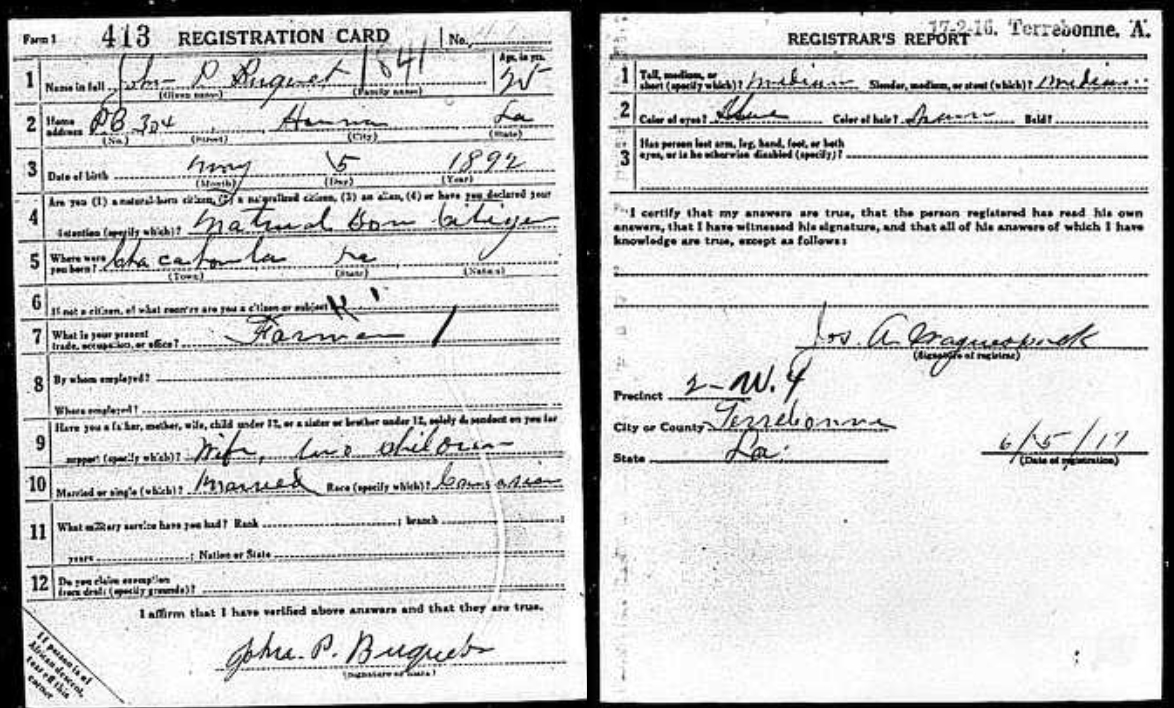 Form 1 413 REGISTRATION CARD No.
1 Name in full John P Buquet 1841 Age, in yrs. 25
(Given name) (Family name)
2 Home address P.B. 304 Houma La
(No.) (Street) (City) (State)
3 Date of birth May 5 1892
(Month) (Day) (Year)
Are you (1) a natural-born citizen, (2) a naturalized citizen, (3) an alien, (4) or have you declared your
4 intention (specify which)? Natural Born Citizen
5 Where were you born? Chacahoula La
(Town) (State) (Nation)
6 If not a citizen, of what country are you a citizen or subject?
7 What is your present trade, occupation, or office? Farmer
8 By whom employed?
Where employed?
9 Have you a father, mother, wife, child under 12, or a sister or brother under 12, solely dependent on you for
support (specify which)? Wife, two children
10 Married or single (which)? Married Race (specify which)? Caucasian
11 What military service have you had? Rank ; branch ;
years ; Nation or State
12 Do you claim exemption from draft (specify grounds)?
I affirm that I have verified above answers and that they are true.
John. P. Buquet
(Signature or mark)
If person is of
African descent,
tear off this
corner
17-2-16. Terrebonne, A.
REGISTRAR'S REPORT
1 Tall, medium, or short (specify which)? Medium Slender, medium, or stout (which)? Medium
2 Color of eyes? Color of hair? Brown Bald?
3 Has person lost arm, leg, hand, foot, or both
eyes, or is he otherwise disabled (specify)?
I certify that my answers are true, that the person registered has read his own
answers, that I have witnessed his signature, and that all of his answers of which I have
knowledge are true, except as follows:
Jos. A. Waguespack
(Signature of registrar)
Precinct 2-W. 4
City or County Terrebonne
State La. 6/5/17
(Date of registration)